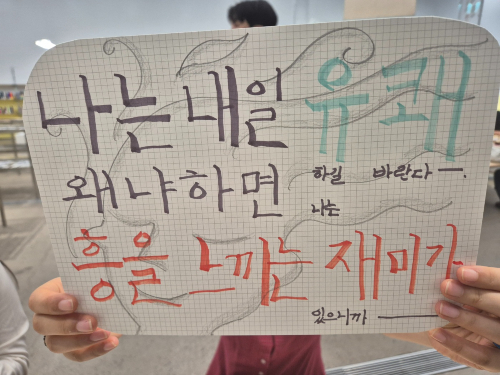 나는 내일 유쾌
하길 바란다 ―.
왜냐하면 나는
흥을 느끼는 재미가
있으니까 ―